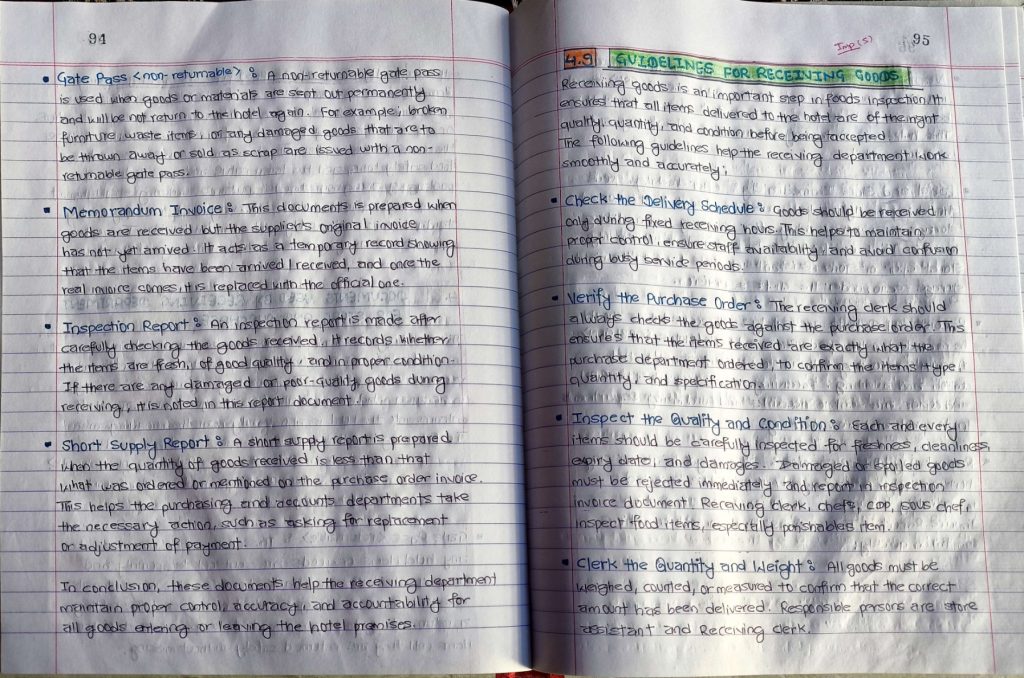 94
• Gate Pass <non-returnable> : A non-returnable gate pass
is used when goods or materials are sent out permanently
and will be not return to the hotel again. For example; broken
furniture, waste items, or any damaged goods that are to
be thrown away or sold as scrap are issued with a non-
returnable gate pass.
• Memorandum Invoice : This documents is prepared when
goods are received but the supplier's original invoice
has not yet arrived. It acts as a temporary record showing
that the items have been arrived / received, and once the
real invoice comes, it is replaced with the official one.
• Inspection Report : An inspection report is made after
carefully checking the goods received. It records whether
the items are fresh, of good quality, and in proper condition.
If there are any damaged or poor-quality goods during
receiving, it is noted in this report document.
• Short Supply Report : A short supply report is prepared
when the quantity of goods received is less than that
what was ordered or mentioned on the purchase order invoice.
This helps the purchasing and accounts departments take
the necessary action, such as asking for replacement
or adjustment of payment.
In conclusion, these documents help the receiving department
maintain proper control, accuracy, and accountability for
all goods entering or leaving the hotel premises.
Imp (5)
95
4.9 GUIDELINES FOR RECEIVING GOODS
Receiving goods is an important step in foods inspection. It
ensures that all items delivered to the hotel are of the right
quality, quantity, and condition before being accepted.
The following guidelines help the receiving department work
smoothly and accurately;
• Check the Delivery Schedule : Goods should be received
only during fixed receiving hours. This helps to maintain
proper control, ensure staff availability, and avoid confusion
during busy service periods.
• Verify the Purchase Order : The receiving clerk should
always checks the goods against the purchase order. This
ensures that the items received are exactly what the
purchase department ordered, to confirm the items type,
quantity, and specification.
• Inspect the Quality and Condition : Each and every
items should be carefully inspected for freshness, cleanliness,
expiry date, and damages. Damaged or spoiled goods
must be rejected immediately and report in inspection
invoice document. Receiving clerk, chefs, CDP, sous chef,
inspect food items, especially perishables item.
• Clerk the Quantity and Weight : All goods must be
weighed, counted, or measured to confirm that the correct
amount has been delivered. Responsible persons are store
assistant and Receiving clerk.